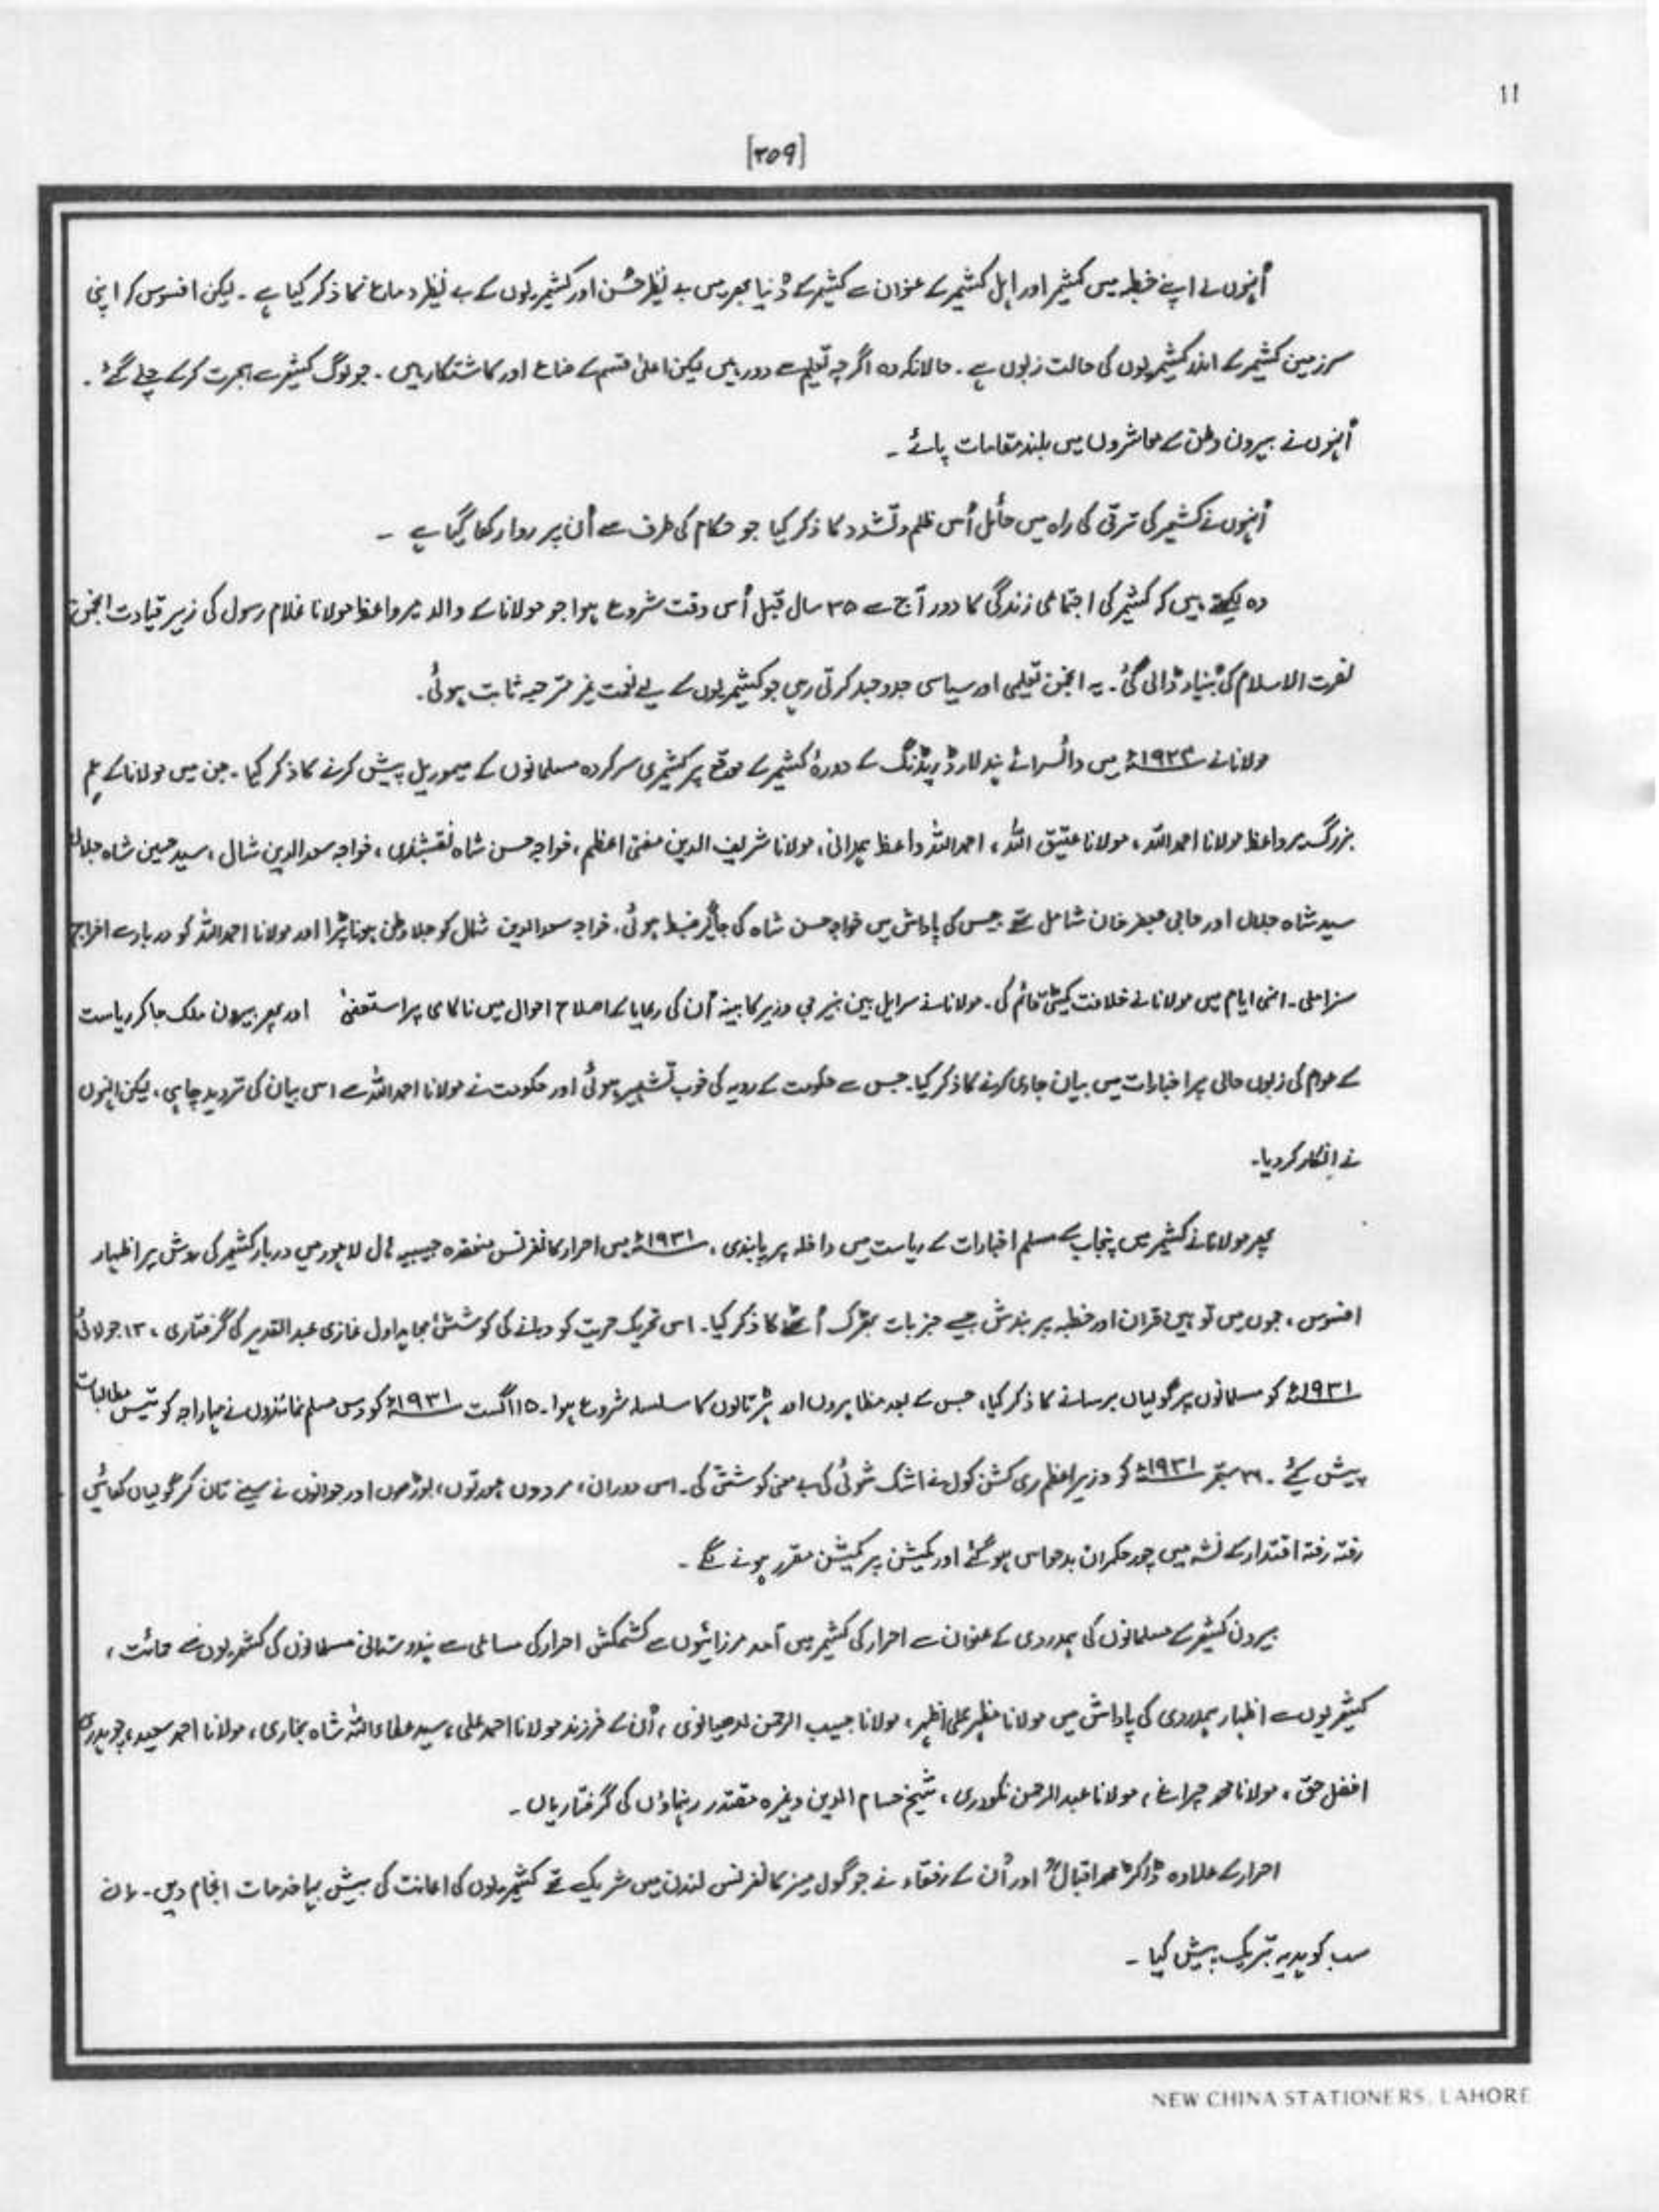 ۱۱
[۲۵۹]
اُنہوں نے اپنے خطبہ میں کشمیر اور اہل کشمیر کے عنوان سے کشمیر کے دُنیا بھر میں بے نظیر حُسن اور کشمیریوں کے بے نظیر دماغ کا ذکر کیا ہے ۔ لیکن افسوس کہ اپنی
سرزمین کشمیر کے اندر کشمیریوں کی حالت زبوں ہے ۔ حالانکہ وہ اگرچہ تعلیم سے دور ہیں لیکن اعلیٰ قسم کے صناع اور کاشتکار ہیں ۔ جو لوگ کشمیر سے ہجرت کرکے چلے گئے ۔
اُنہوں نے بیرون وطن کے معاشروں میں بلند مقامات پائے ۔
اُنہوں نے کشمیر کی ترقی کی راہ میں حائل اُس ظلم و تشدد کا ذکر کیا جو حکام کی طرف سے اُن پر روا رکھا گیا ہے ۔
وہ لکھتے ہیں کہ کشمیر کی اجتماعی زندگی کا دور آج سے ۳۵ سال قبل اُس وقت شروع ہوا جو مولانا کے والد میر واعظ مولانا غلام رسول کی زیر قیادت انجمن
نصرت الاسلام کی بُنیاد ڈالی گئی ۔ یہ انجمن تعلیمی اور سیاسی جدوجہد کرتی رہی جو کشمیریوں کے لیے نعمت غیر مترقبہ ثابت ہوئی ۔
مولانا نے ۱۹۲۴ء میں وائسرائے ہند لارڈ ریڈنگ کے دورۂ کشمیر کے موقع پر کشمیری سرکردہ مسلمانوں کے میموریل پیش کرنے کا ذکر کیا ۔ جن میں مولانا کے عم
بزرگ میر واعظ مولانا احمد اللہ ، مولانا عتیق اللہ ، احمد اللہ واعظ ہمدانی ، مولانا شریف الدین مفتی اعظم ، خواجہ حسن شاہ نقشبندی ، خواجہ سعد الدین شال ، سید حسین شاہ جلالی
سید شاہ جلال اور حاجی جعفر خان شامل تھے جس کی پاداش میں خواجہ حسن شاہ کی جاگیر ضبط ہوئی ، خواجہ سعد الدین شال کو جلا وطن ہونا پڑا اور مولانا احمد اللہ کو دربار سے اخراج
سزا ملی ۔ انہی ایام میں مولانا نے خلافت کمیٹی قائم کی ۔ مولانا نے سر ایل بین نیر جی وزیر کابینہ اُن کی رعایا کے اصلاح احوال میں ناکامی پر استعفیٰ اور پھر بیرون ملک جا کر ریاست
کے عوام کی زبوں حالی پر اخبارات میں بیان جاری کرنے کا ذکر کیا ۔ جس سے حکومت کے رویہ کی خوب تشہیر ہوئی اور حکومت نے مولانا احمد اللہ سے اس بیان کی تردید چاہی ، لیکن اُنہوں
نے انکار کر دیا ۔
پھر مولانا نے کشمیر میں پنجاب کے مسلم اخبارات کے ریاست میں داخلہ پر پابندی ، ۱۹۳۱ء میں احرار کانفرنس منعقدہ حبیبیہ ہال لاہور میں دربار کشمیر کی روش پر اظہار
افسوس ، جموں میں توہین قرآن اور خطبہ پر بندش جیسے جزبات بھڑک اُٹھنے کا ذکر کیا ۔ اس تحریک حریت کو دبانے کی کوشش مجاہد اول غازی عبدالقدیر کی گرفتاری ، ۱۳ جولائی
۱۹۳۱ء کو مسلمانوں پر گولیاں برسانے کا ذکر کیا ، جس کے بعد مظاہروں اور ہڑتالوں کا سلسلہ شروع ہوا ۔ ۱۵ اگست ۱۹۳۱ء کو دس مسلم نمائندوں نے مہاراجہ کو تیس مطالبات
پیش کئے ۔ ۲۶ ستمبر ۱۹۳۱ء کو وزیر اعظم ہری کشن کول نے اشک شوئی کی بے معنی کوشش کی ۔ اس دوران ، مردوں عورتوں ، بوڑھوں اور جوانوں نے سینے تان کر گولیاں کھائیں
رفتہ رفتہ اقتدار کے نشہ میں چور حکمران بدحواس ہو گئے اور کمیشن پر کمیشن مقرر ہونے لگے ۔
بیرون کشمیر کے مسلمانوں کی ہمدردی کے عنوان سے احرار کی کشمیر میں آمد مرزائیوں سے کشمکش احرار کی مساعی سے ہندوستانی مسلمانوں کی کشمیریوں سے حمائت ،
کشمیریوں سے اظہار ہمدردی کی پاداش میں مولانا مظہر علی اظہر ، مولانا حبیب الرحمن لدھیانوی ، اُن کے فرزند مولانا احمد علی ، سید عطاء اللہ شاہ بخاری ، مولانا احمد سعید ، چوہدری
افضل حق ، مولانا محمد چراغ ، مولانا عبدالرحمن نکودری ، شیخ حسام الدین وغیرہ مقتدر رہنماؤں کی گرفتاریاں ۔
احرار کے علاوہ ڈاکٹر محمد اقبالؒ اور اُن کے رفقاء نے جو گول میز کانفرنس لندن میں شریک تھے کشمیریوں کی اعانت کی بیش بہا خدمات انجام دیں ۔ ان
سب کو ہدیہ تبریک پیش کیا ۔
NEW CHINA STATIONERS, LAHORE